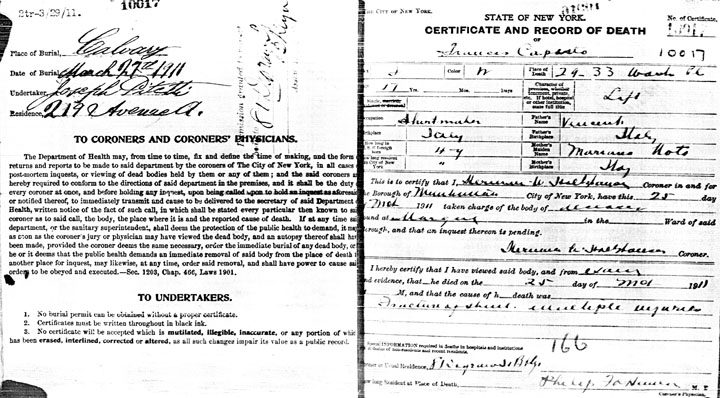 Str-3/29/11.
10017
Place of Burial, Calvary
Date of Burial, March 27th 1911
Undertaker, Joseph
Residence, 2192 Avenue A.
TO CORONERS AND CORONERS' PHYSICIANS.
The Department of Health may, from time to time, fix and define the time of making, and the form
returns and reports to be made to said department by the coroners of The City of New York, in all cases
post-mortem inquests, or viewing of dead bodies held by them or any of them; and the said coroners a
hereby required to conform to the directions of said department in the premises, and it shall be the duty
every coroner at once, and before holding any inquest, upon being called upon to hold an inquest as aforesa
or notified thereof, to immediately transmit and cause to be delivered to the secretary of said Department
Health, written notice of the fact of such call, in which shall be stated every particular then known to sa
coroner as to said call, the body, the place where it is and the reported cause of death. If at any time sa
department, or the sanitary superintendent, shall deem the protection of the public health to demand, it may
as soon as the coroner's jury or physician may have viewed the dead body, and an autopsy thereof shall ha
been made, provided the coroner deems the same necessary, order the immediate burial of any dead body, or
be or it deems that the public health demands an immediate removal of said body from the place of death t
another place for inquest, may likewise, at any time, order said removal, and shall have power to cause sai
orders to be obeyed and executed.—Sec. 1203, Chap. 466, Laws 1901.
TO UNDERTAKERS.
1. No burial permit can be obtained without a proper certificate.
2. Certificates must be written throughout in black ink.
3. No certificate will be accepted which is mutilated, illegible, inaccurate, or any portion of whic
has been erased, interlined, corrected or altered, as all such changes impair its value as a public record.
THE CITY OF NEW YORK.
STATE OF NEW YORK.
No. of Certificate,
CERTIFICATE AND RECORD OF DEATH
OF
Frances
10017
Color W
Place of Death 29-33 Wash Pl
17 Yrs. Mos. Days
Character of premises, whether tenement, private, etc. If hotel, hospital or other institution, state full title
Loft
Single,
Occupation
Father's Name Vincent
Birthplace Italy
Father's Birthplace Italy
4-y
Mother's Maiden Name
Mother's Birthplace Italy
This is to certify that I, Herman W Holtzhauser Coroner in and for
the Borough of Manhattan City of New York, have this 25 day
of Mch 1911 taken charge of the body of deceased
found at Morgue in the Ward of said
Borough, and that an inquest thereon is pending.
Herman W Holtzhauser Coroner.
I hereby certify that I have viewed said body, and from exam
and evidence, that he died on the 25 day of Mch 1911
M, and that the cause of h death was
Fracture of skull. multiple injuries
166
Special INFORMATION required in deaths in hospitals and institutions
and in deaths of non-residents and recent residents.
Former or Usual Residence,
How long Resident at Place of Death,
Philip
Coroner's Physician.